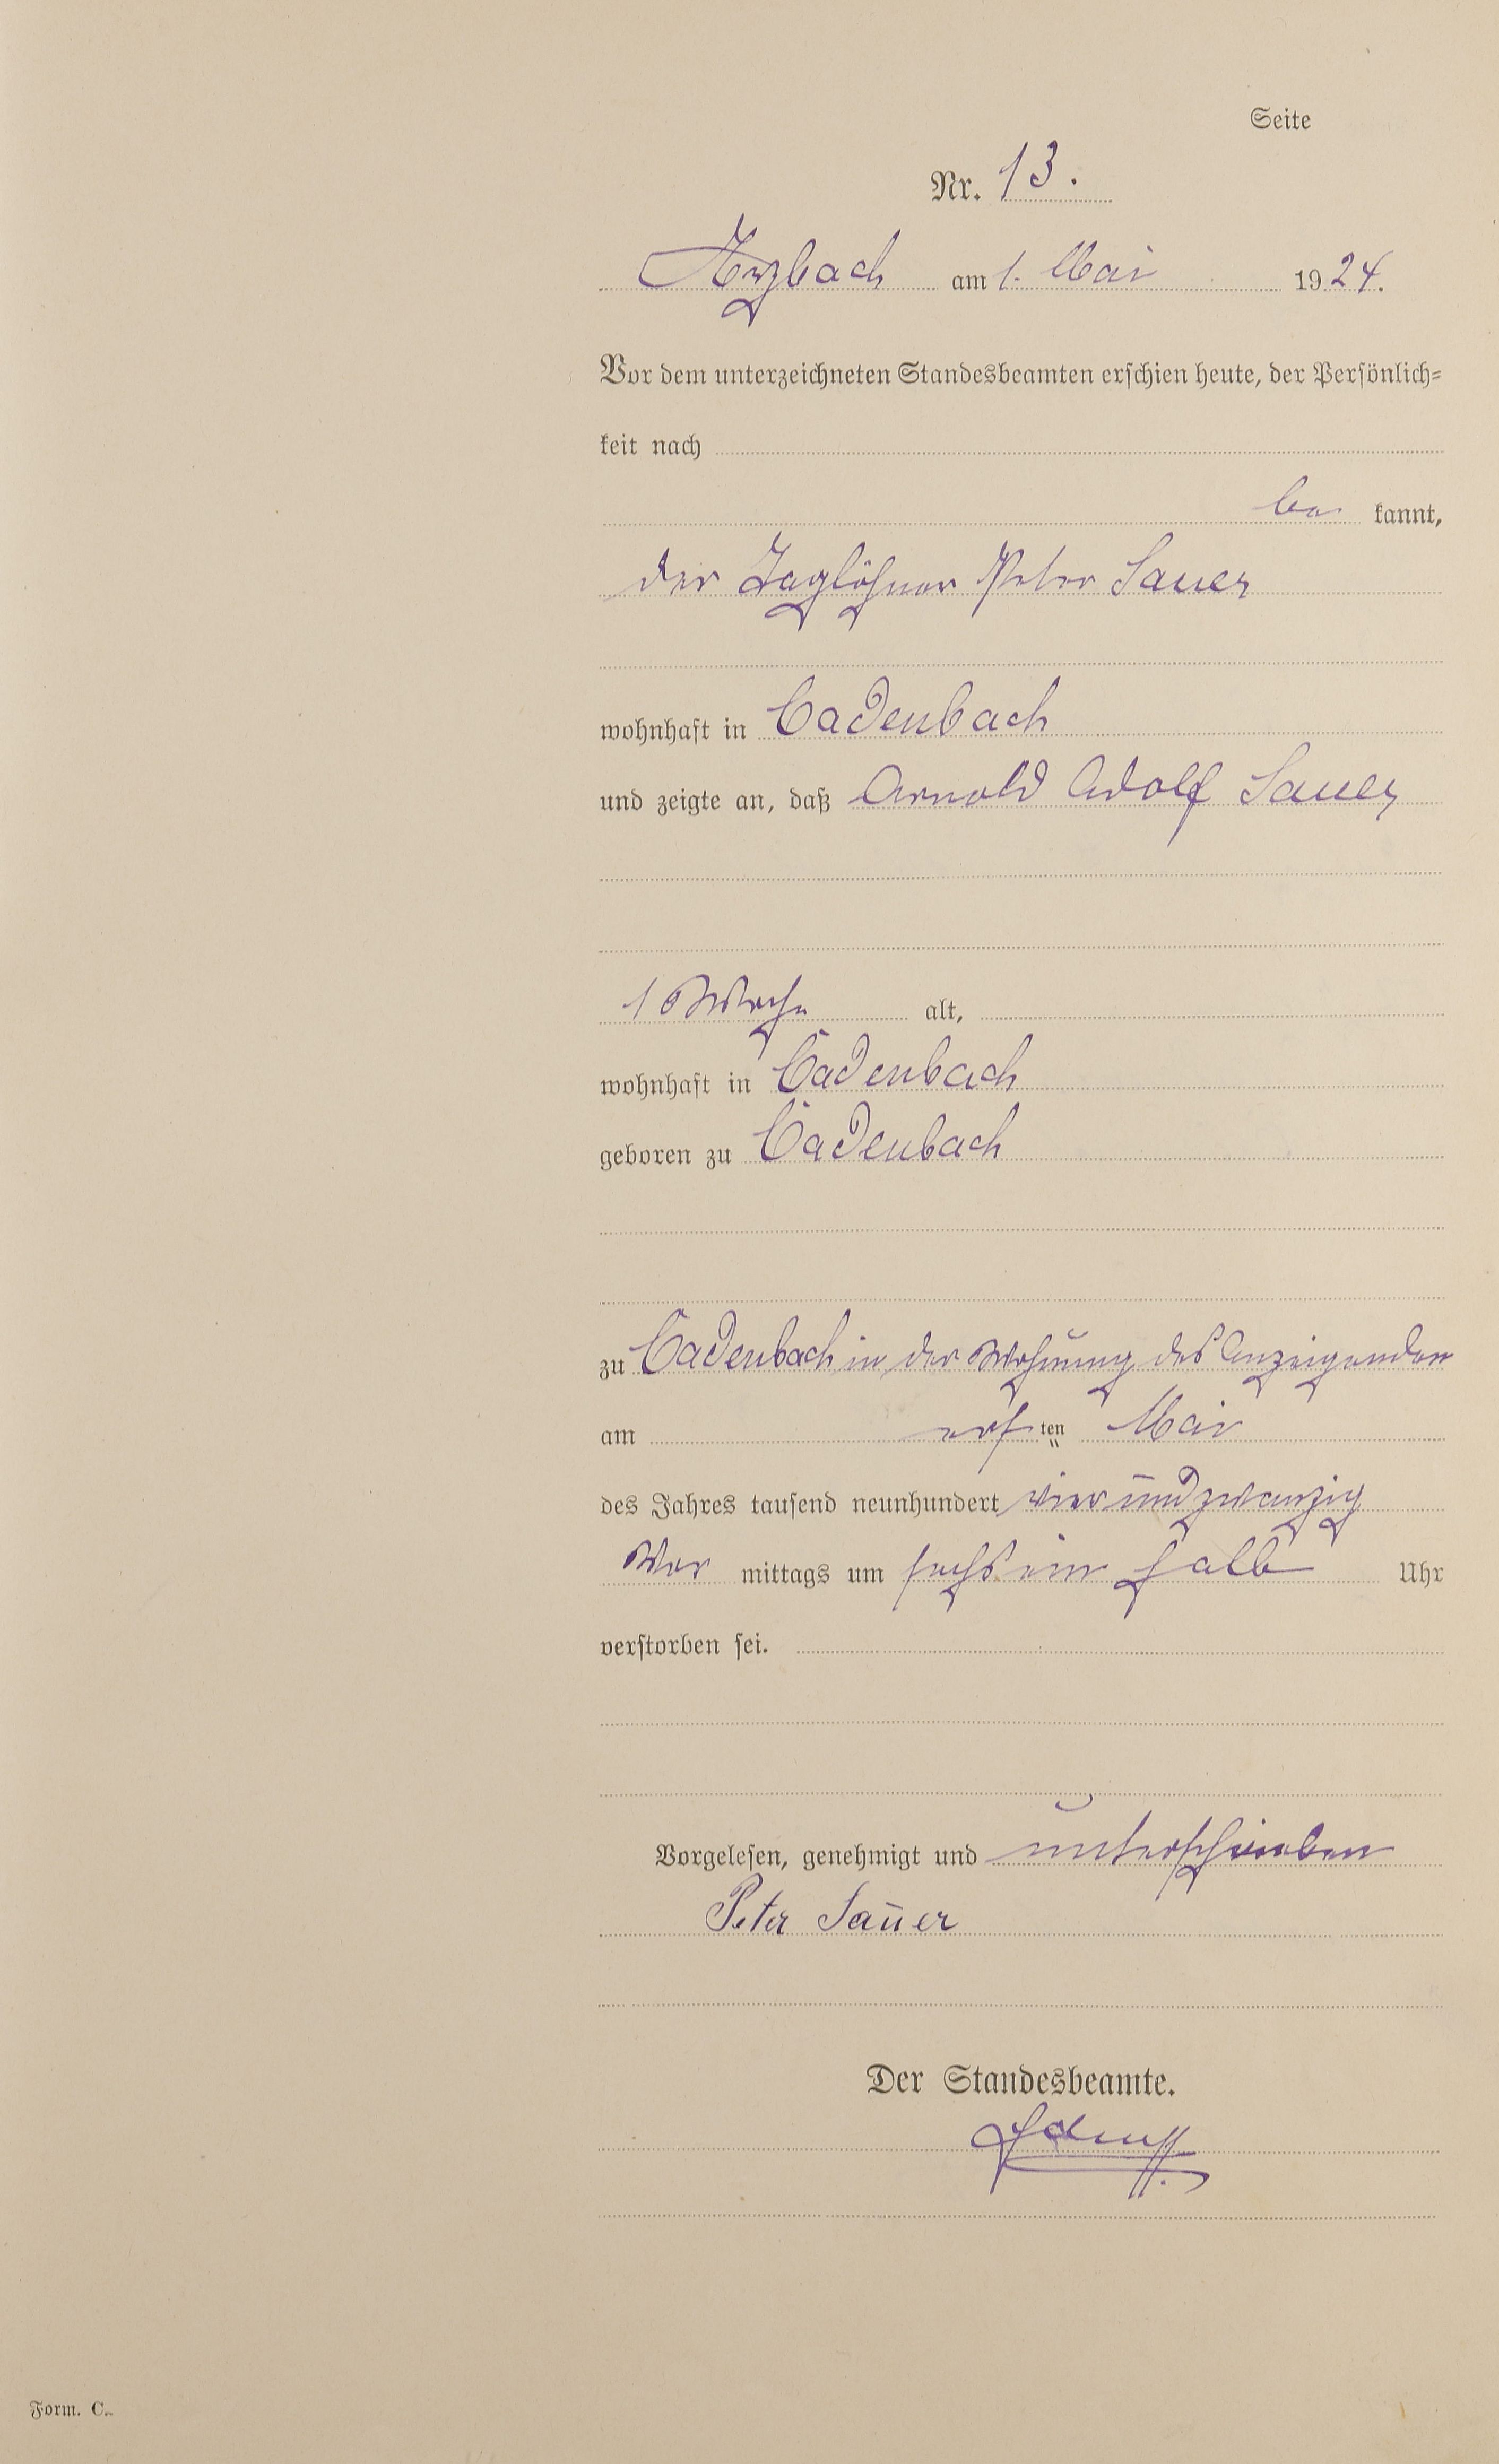 Seite
Nr. 13.
Arzbach am 1. Mai 1924.
Vor dem unterzeichneten Standesbeamten erschien heute, der Persönlich-
keit nach
be kannt,
der Taglöhner Peter Sauer
wohnhaft in Cadenbach
und zeigte an, daß Arnold Adolf Sauer
1 Woche alt,
wohnhaft in Cadenbach
geboren zu Cadenbach
zu Cadenbach in der Wohnung des Anzeigenden
am ersten Mai
des Jahres tausend neunhundert vier und zwanzig
Vor mittags um sechs ein halb Uhr
verstorben sei.
Vorgelesen, genehmigt und unterschrieben
Peter Sauer
Der Standesbeamte.
Form. C.